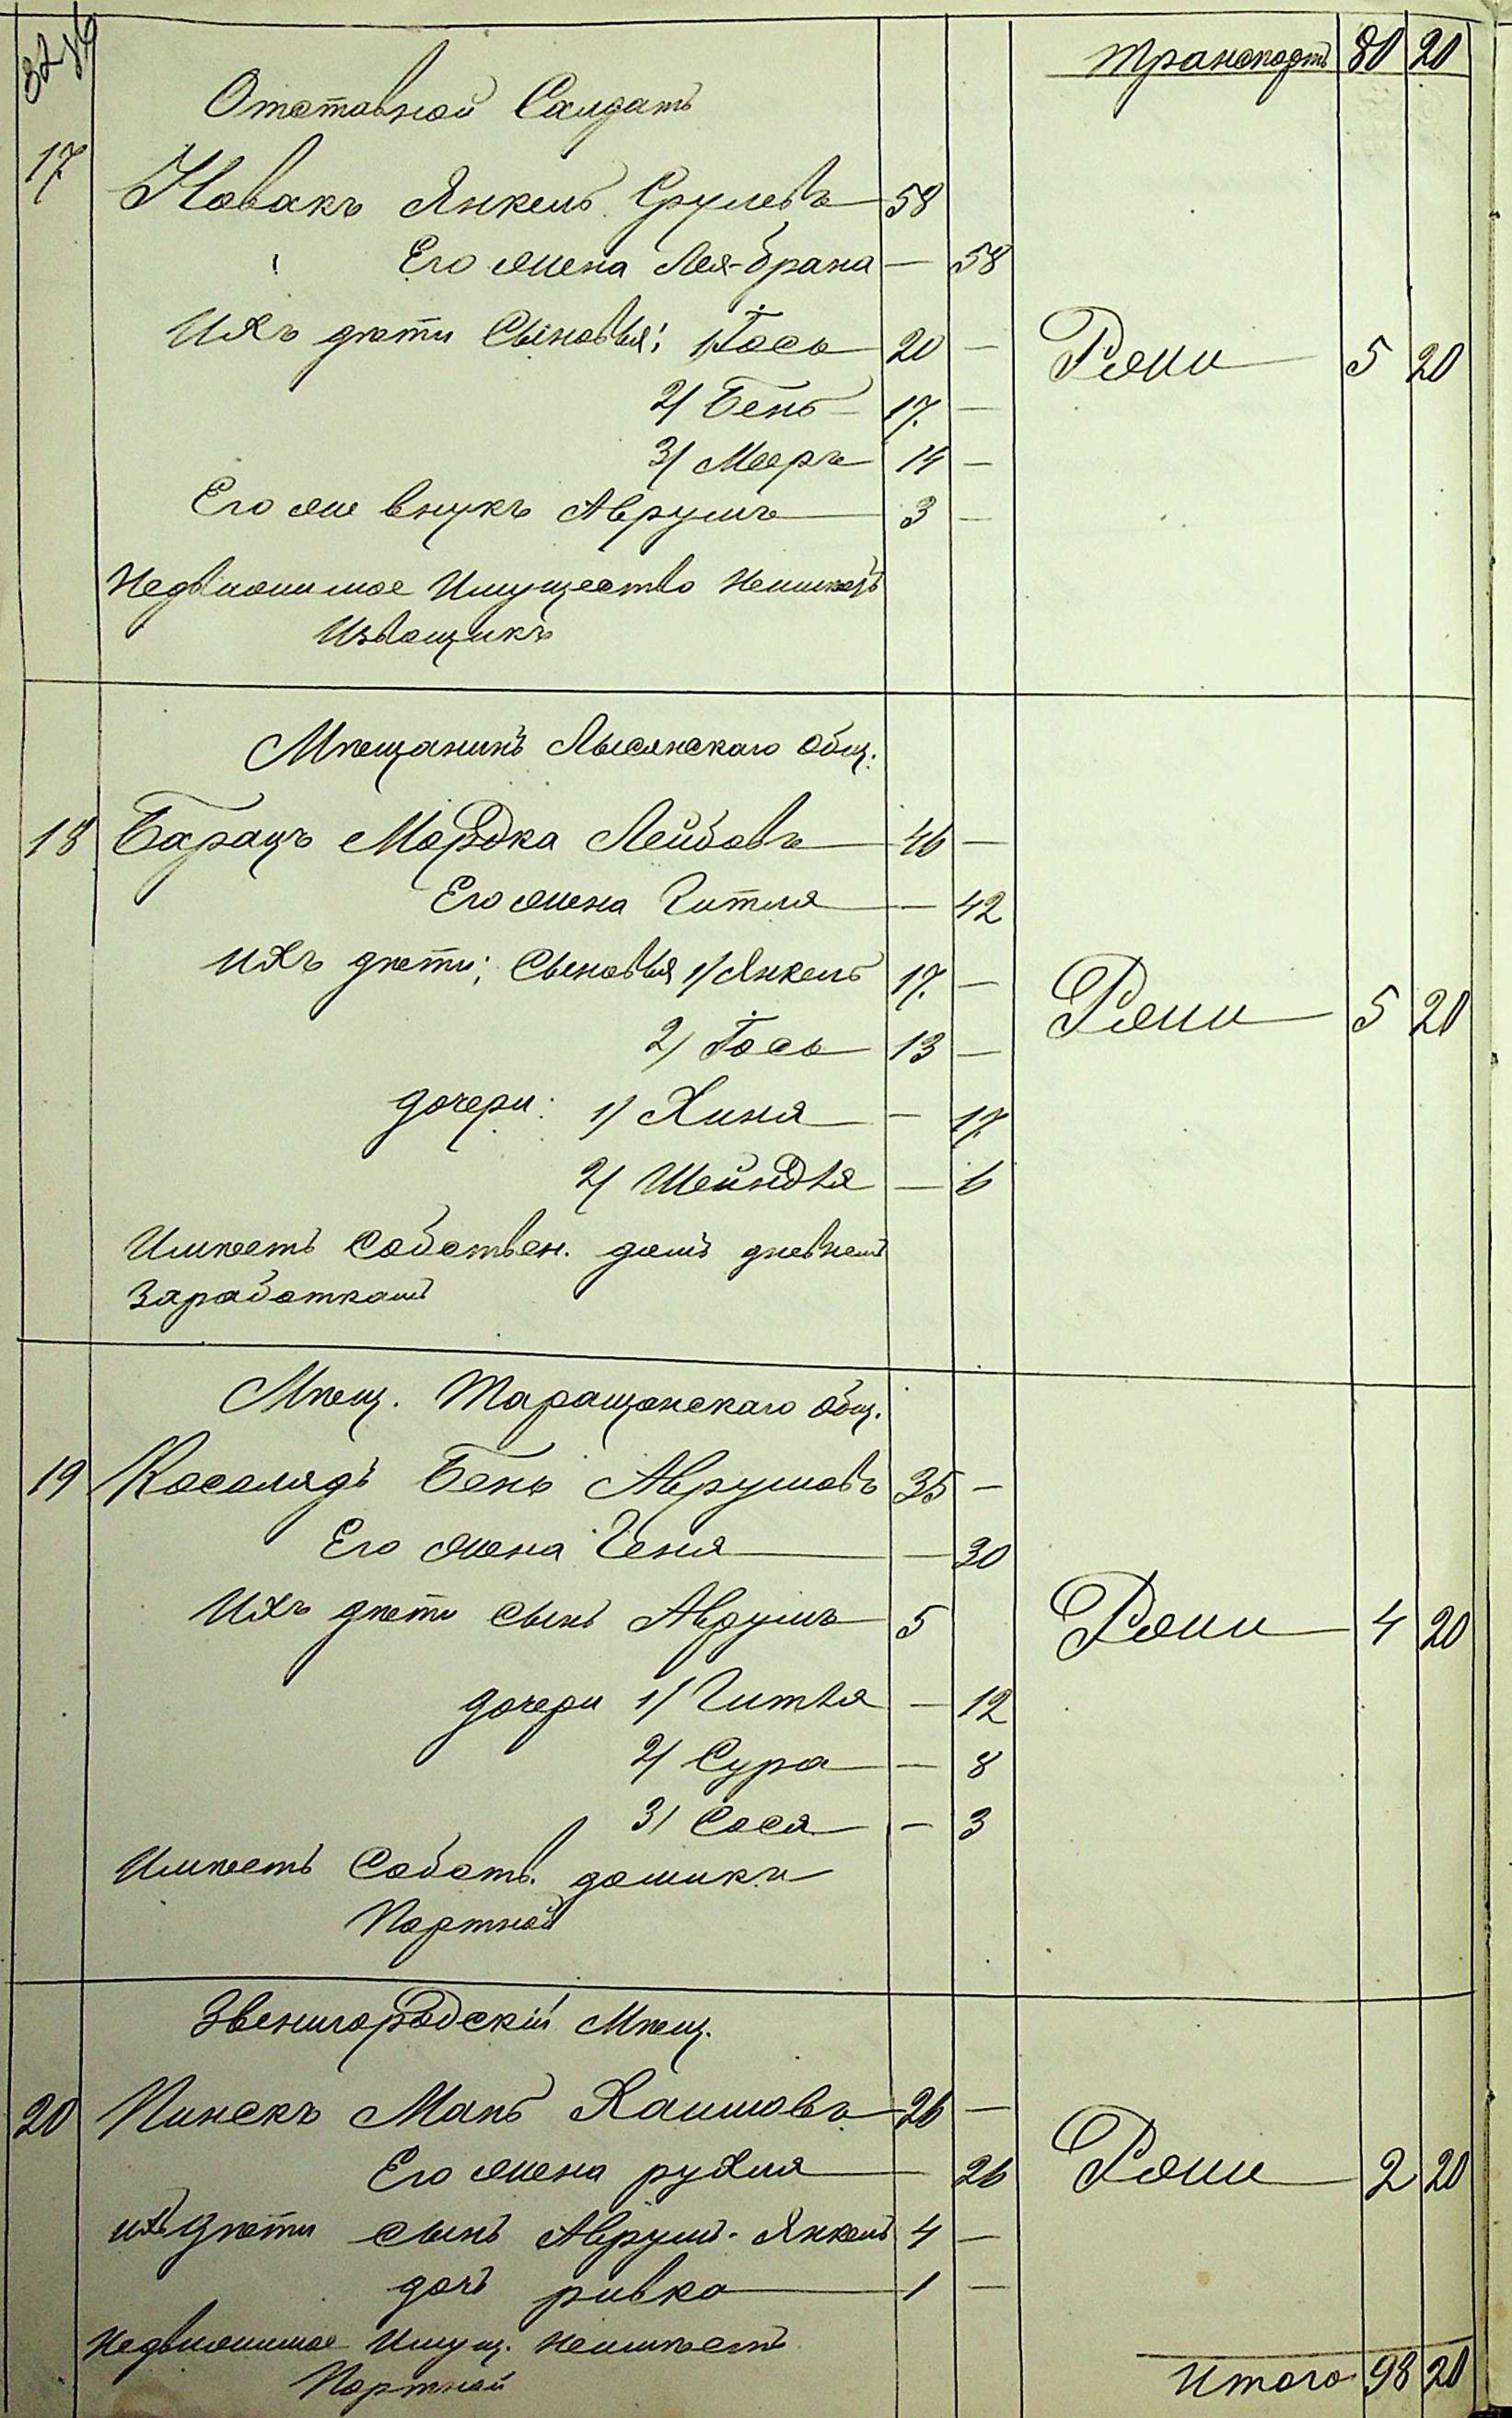 Транспортъ 80 20
Отставной Салдатъ
17 Новакъ Янкель Срулевъ 58
Его жена Лея-брана — 58
Ихъ дѣти Сыновья: 1/ Іось 20 — 5 20
2/ Бень 17 —
3/ Мееръ 14 —
Его же внукъ Аврумъ 3 —
Недвижимое Имущество Неимѣетъ
Извощикъ
Мѣщанинъ Лысянскаго Общ.
18 Барацъ Мордка Лейбовъ 46 —
Его жена Гитля — 42
ихъ дѣти; Сыновья 1/ Янкель 17 — 5 20
2/ Іось 13 —
дочери: 1/ Хиня — 17
2/ Шейндля — 6
Имѣетъ Собствен. домъ дневнем
Заработкомъ
Мѣщ. Таращанскаго Общ.
19 Косолядъ Бень Аврумовъ 35 —
Его жена Геня — 30
Ихъ дѣти сынъ Аврумъ 5 4 20
дочери 1/ Гитля — 12
2/ Сура — 8
3/ Сося — 3
Имѣетъ Собств. домикъ
Портной
Звенигородскій Мѣщ.
20 Пинскъ Мань Хаимовъ 26 —
Его жена рухля — 26 2 20
ихъ дѣти сынъ Аврум-Янкель 4 —
дочъ ривка 1 —
Недвижимое Имущ. неимѣетъ
Портной
Итого 98 20